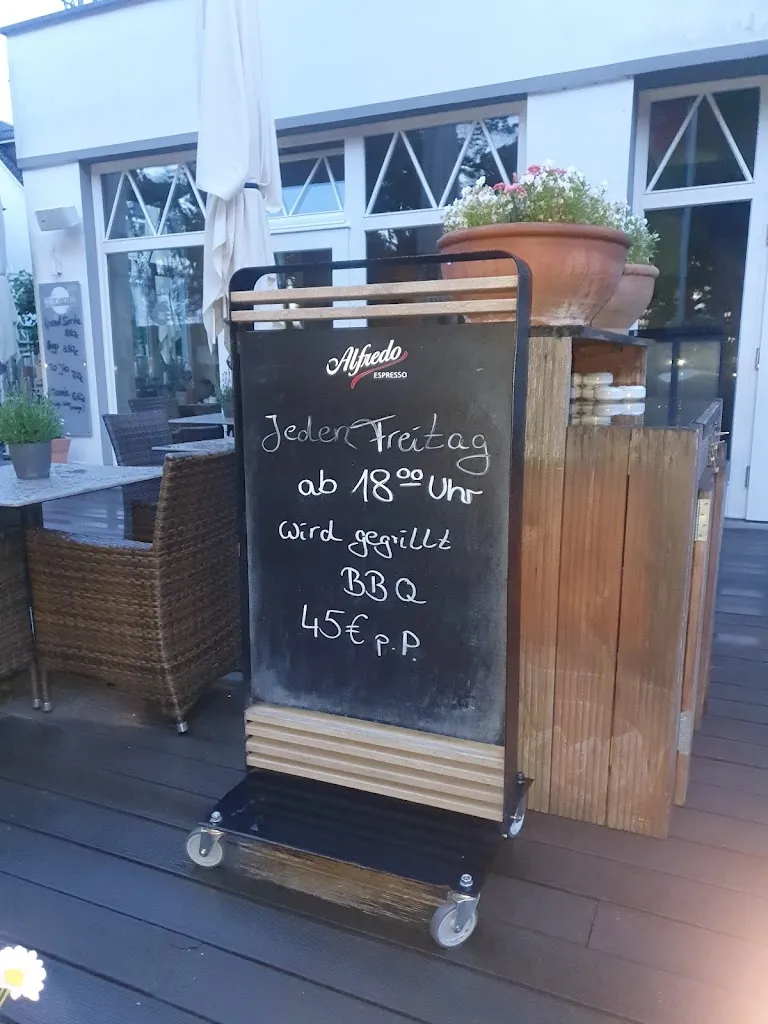 Alfredo
ESPRESSO
Jeden Freitag
ab 18⁰⁰ Uhr
wird gegrillt
BBQ
45€ p.P.